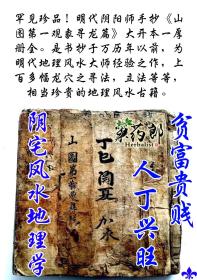 罕见珍品！明代阴阳师手抄《山
图第一观象寻龙篇》大开本一厚
册全。是书抄于万历年以前，为
明代地理风水大师经验之作，上
百多幅龙穴之寻法，立法等等，
相当珍贵的地理风水古籍。
药郎
Herbalist
贫富贵贱
人丁兴旺
阴宅风水地理学
山图第